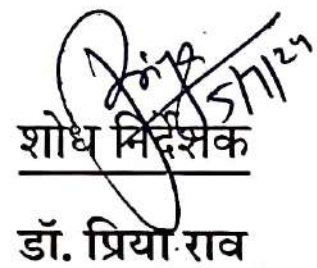 5/7/24
शोध निर्देशक
डॉ. प्रिया राव